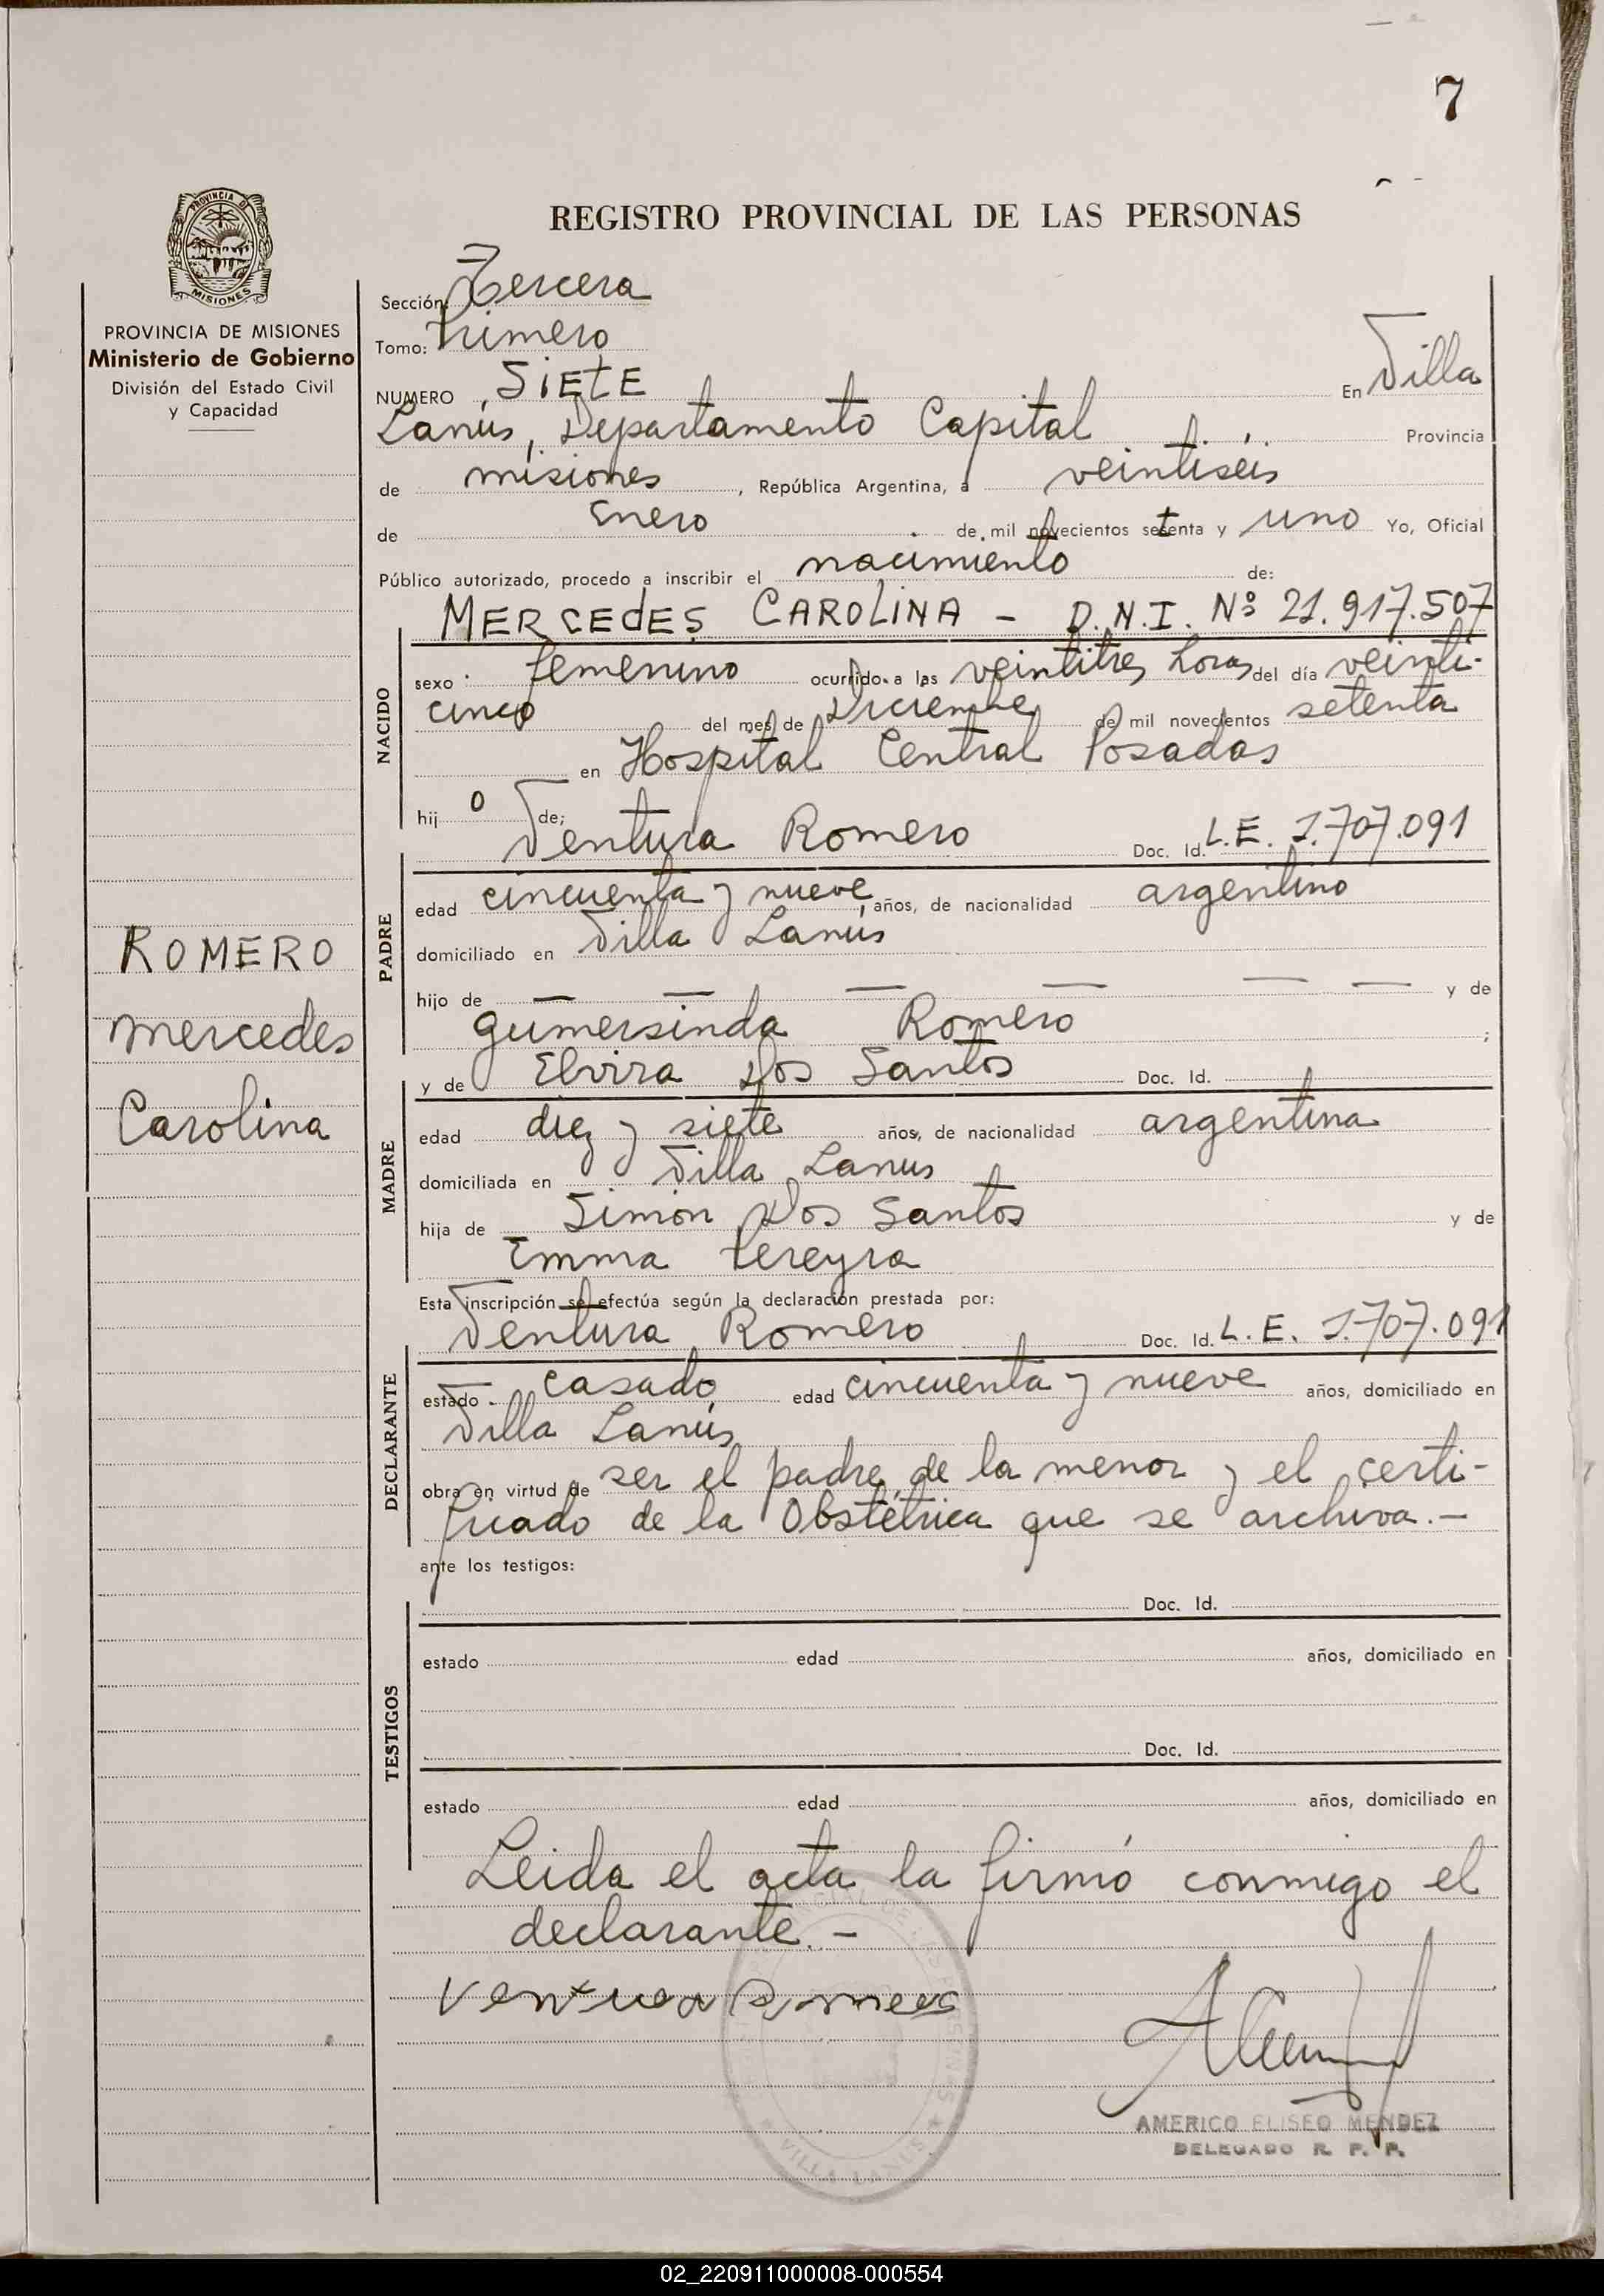 7
PROVINCIA DE MISIONES
Ministerio de Gobierno
División del Estado Civil
y Capacidad
ROMERO
Mercedes
Carolina
REGISTRO PROVINCIAL DE LAS PERSONAS
Sección: Tercera
Tomo: Primero
NUMERO SIETE En Villa
Lanús, Departamento Capital Provincia
de misiones, República Argentina, a veintiseis
de Enero de mil novecientos setenta y uno Yo, Oficial
Público autorizado, procedo a inscribir el nacimiento de:
MERCEDES CAROLINA - D.N.I. Nº 21.917.507
NACIDO
sexo femenino ocurrido a las veintitres horas del día veinti-
cinco del mes de Diciembre de mil novecientos setenta
en Hospital Central Posadas
hij o de:
Ventura Romero Doc. Id. L.E. 1.707.091
PADRE
edad cincuenta y nueve años, de nacionalidad argentino
domiciliado en Villa Lanús
hijo de — — — — — — y de
Gumersinda Romero ;
y de Elvira Dos Santos Doc. Id.
MADRE
edad diez y siete años, de nacionalidad argentina
domiciliada en Villa Lanus
hija de Simón Dos Santos y de
Emma Pereyra
Esta inscripción se efectúa según la declaración prestada por:
Ventura Romero Doc. Id. L.E. 1.707.091
DECLARANTE
estado casado edad cincuenta y nueve años, domiciliado en
Villa Lanús
obra en virtud de ser el padre de la menor y el certi-
ficado de la Obstétrica que se archiva.-
ante los testigos:
Doc. Id.
TESTIGOS
estado edad años, domiciliado en
Doc. Id.
estado edad años, domiciliado en
Leida el acta la firmó conmigo el
declarante.-
Ventura Romero
AMERICO ELISEO MENDEZ
DELEGADO R. P. P.
VILLA LANUS
02_220911000008-000554